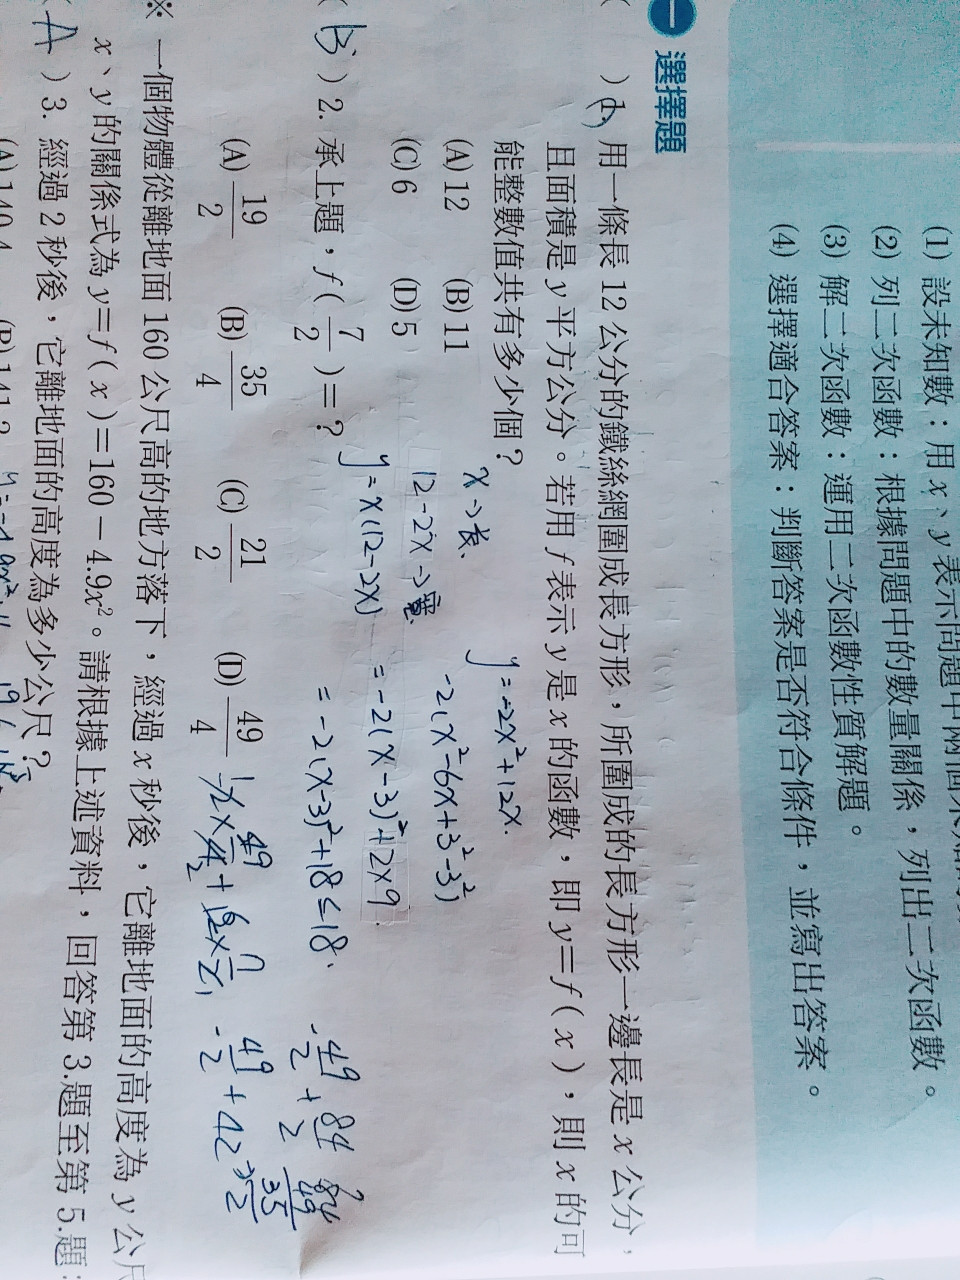 (1) 設未知數：用 x、y 表示問題中兩個未知的
(2) 列二次函數：根據問題中的數量關係，列出二次函數。
(3) 解二次函數：運用二次函數性質解題。
(4) 選擇適合答案：判斷答案是否符合條件，並寫出答案。
一 選擇題
( d ) 1. 用一條長 12 公分的鐵絲網圍成長方形，所圍成的長方形一邊長是 x 公分，
且面積是 y 平方公分。若用 f 表示 y 是 x 的函數，即 y=f(x)，則 x 的可
能整數值共有多少個？
(A) 12 (B) 11
(C) 6 (D) 5
x → 長
12-2x → 寬
y = x(12-2x)
y = -2x²+12x
-2(x²-6x+3²-3²)
= -2(x-3)²+2×9
= -2(x-3)²+18≤18
( B ) 2. 承上題，f(7/2)=？
(A) 19/2 (B) 35/4 (C) 21/2 (D) 49/4
-49/2 + 84/2
-49/2 + 42 = 35/2
※ 一個物體從離地面 160 公尺高的地方落下，經過 x 秒後，它離地面的高度為 y 公尺
x、y 的關係式為 y=f(x)=160-4.9x²。請根據上述資料，回答第 3.題至第 5.題：
( A ) 3. 經過 2 秒後，它離地面的高度為多少公尺？
(A) 140.4 (B) 141.2